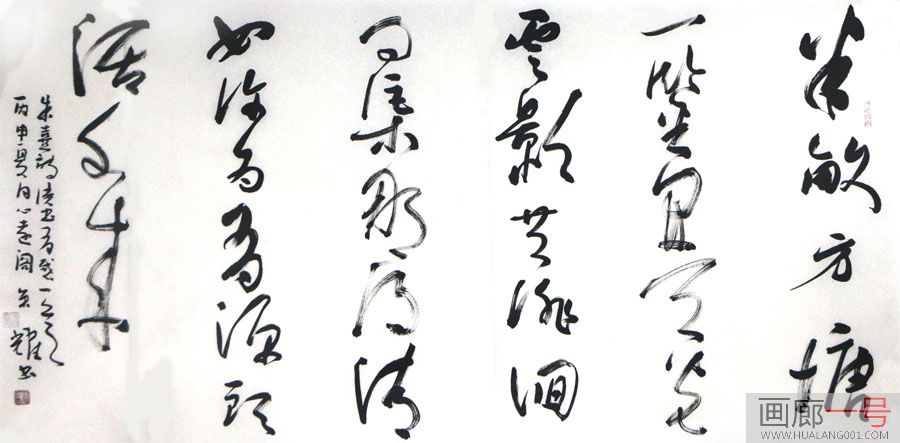 半畝方塘
一鑒開天光
雲影共徘徊
問渠那得清
如許為有源頭
活水来
朱熹詩读书有感一
丙申夏月心遠阁 耀书
画廊一号
WWW.HUALANG001.COM